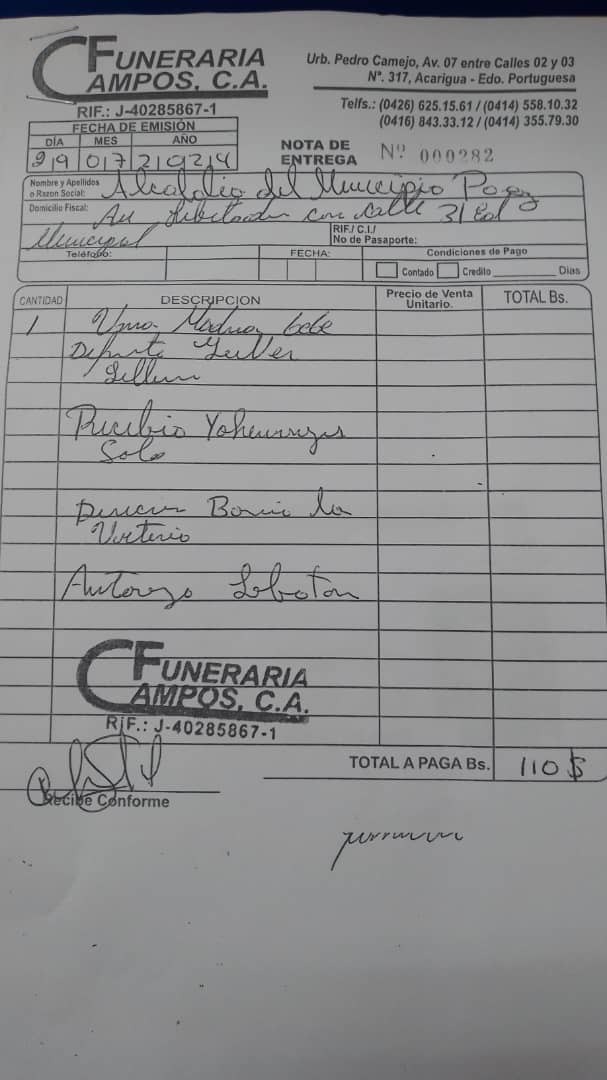 CF FUNERARIA
CAMPOS, C.A.
RIF.: J-40285867-1
Urb. Pedro Camejo, Av. 07 entre Calles 02 y 03
Nº. 317, Acarigua - Edo. Portuguesa
Telfs.: (0426) 625.15.61 / (0414) 558.10.32
(0416) 843.33.12 / (0414) 355.79.30
FECHA DE EMISIÓN
DÍA MES AÑO
29 07 2024
NOTA DE
ENTREGA Nº 000282
Nombre y Apellidos
o Razon Social: Alcaldia del Municipio Paez
Domicilio Fiscal: Av Libertador con calle 31 Ed
Municipal
RIF./ C.I./
No de Pasaporte:
Teléfono: FECHA: Condiciones de Pago
Contado Credito Dias
CANTIDAD DESCRIPCION Precio de Venta Unitario. TOTAL Bs.
1 Urna Madera bebe
Recibio
Sole
Direccion Barrio la
Autorizo
FUNERARIA
CAMPOS, C.A.
RIF.: J-40285867-1
TOTAL A PAGA Bs. 110 $
Recibe Conforme